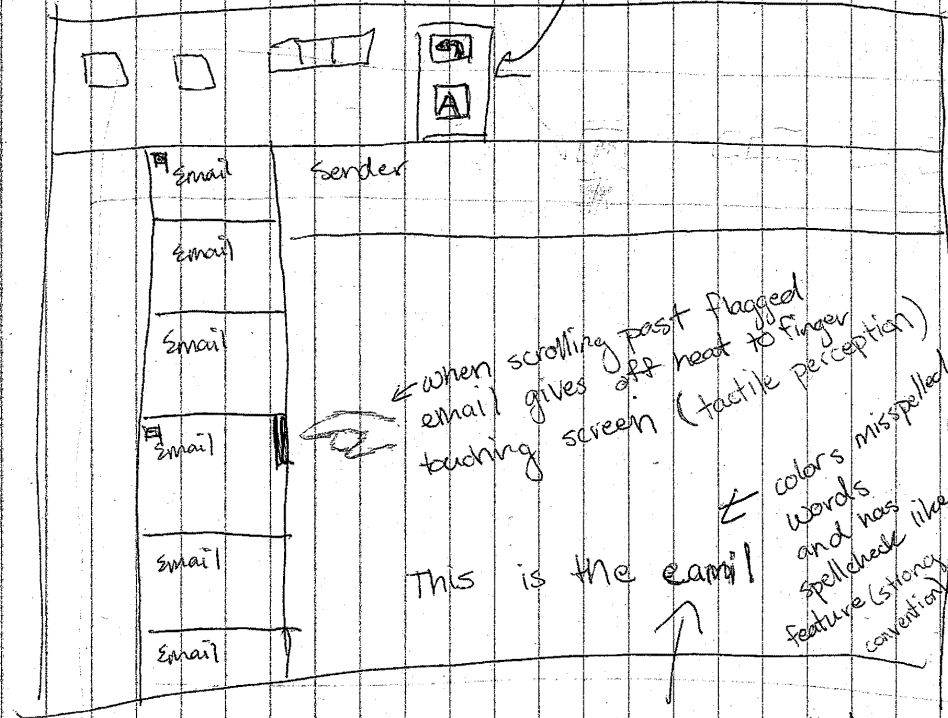 A
Email
Sender
Email
Email
Email
Email
Email
when scrolling past flagged
email gives off heat to finger
touching screen (tactile perception)
This is the eamil
colors misspelled
words
and has
spellcheck like
feature (strong
convention)